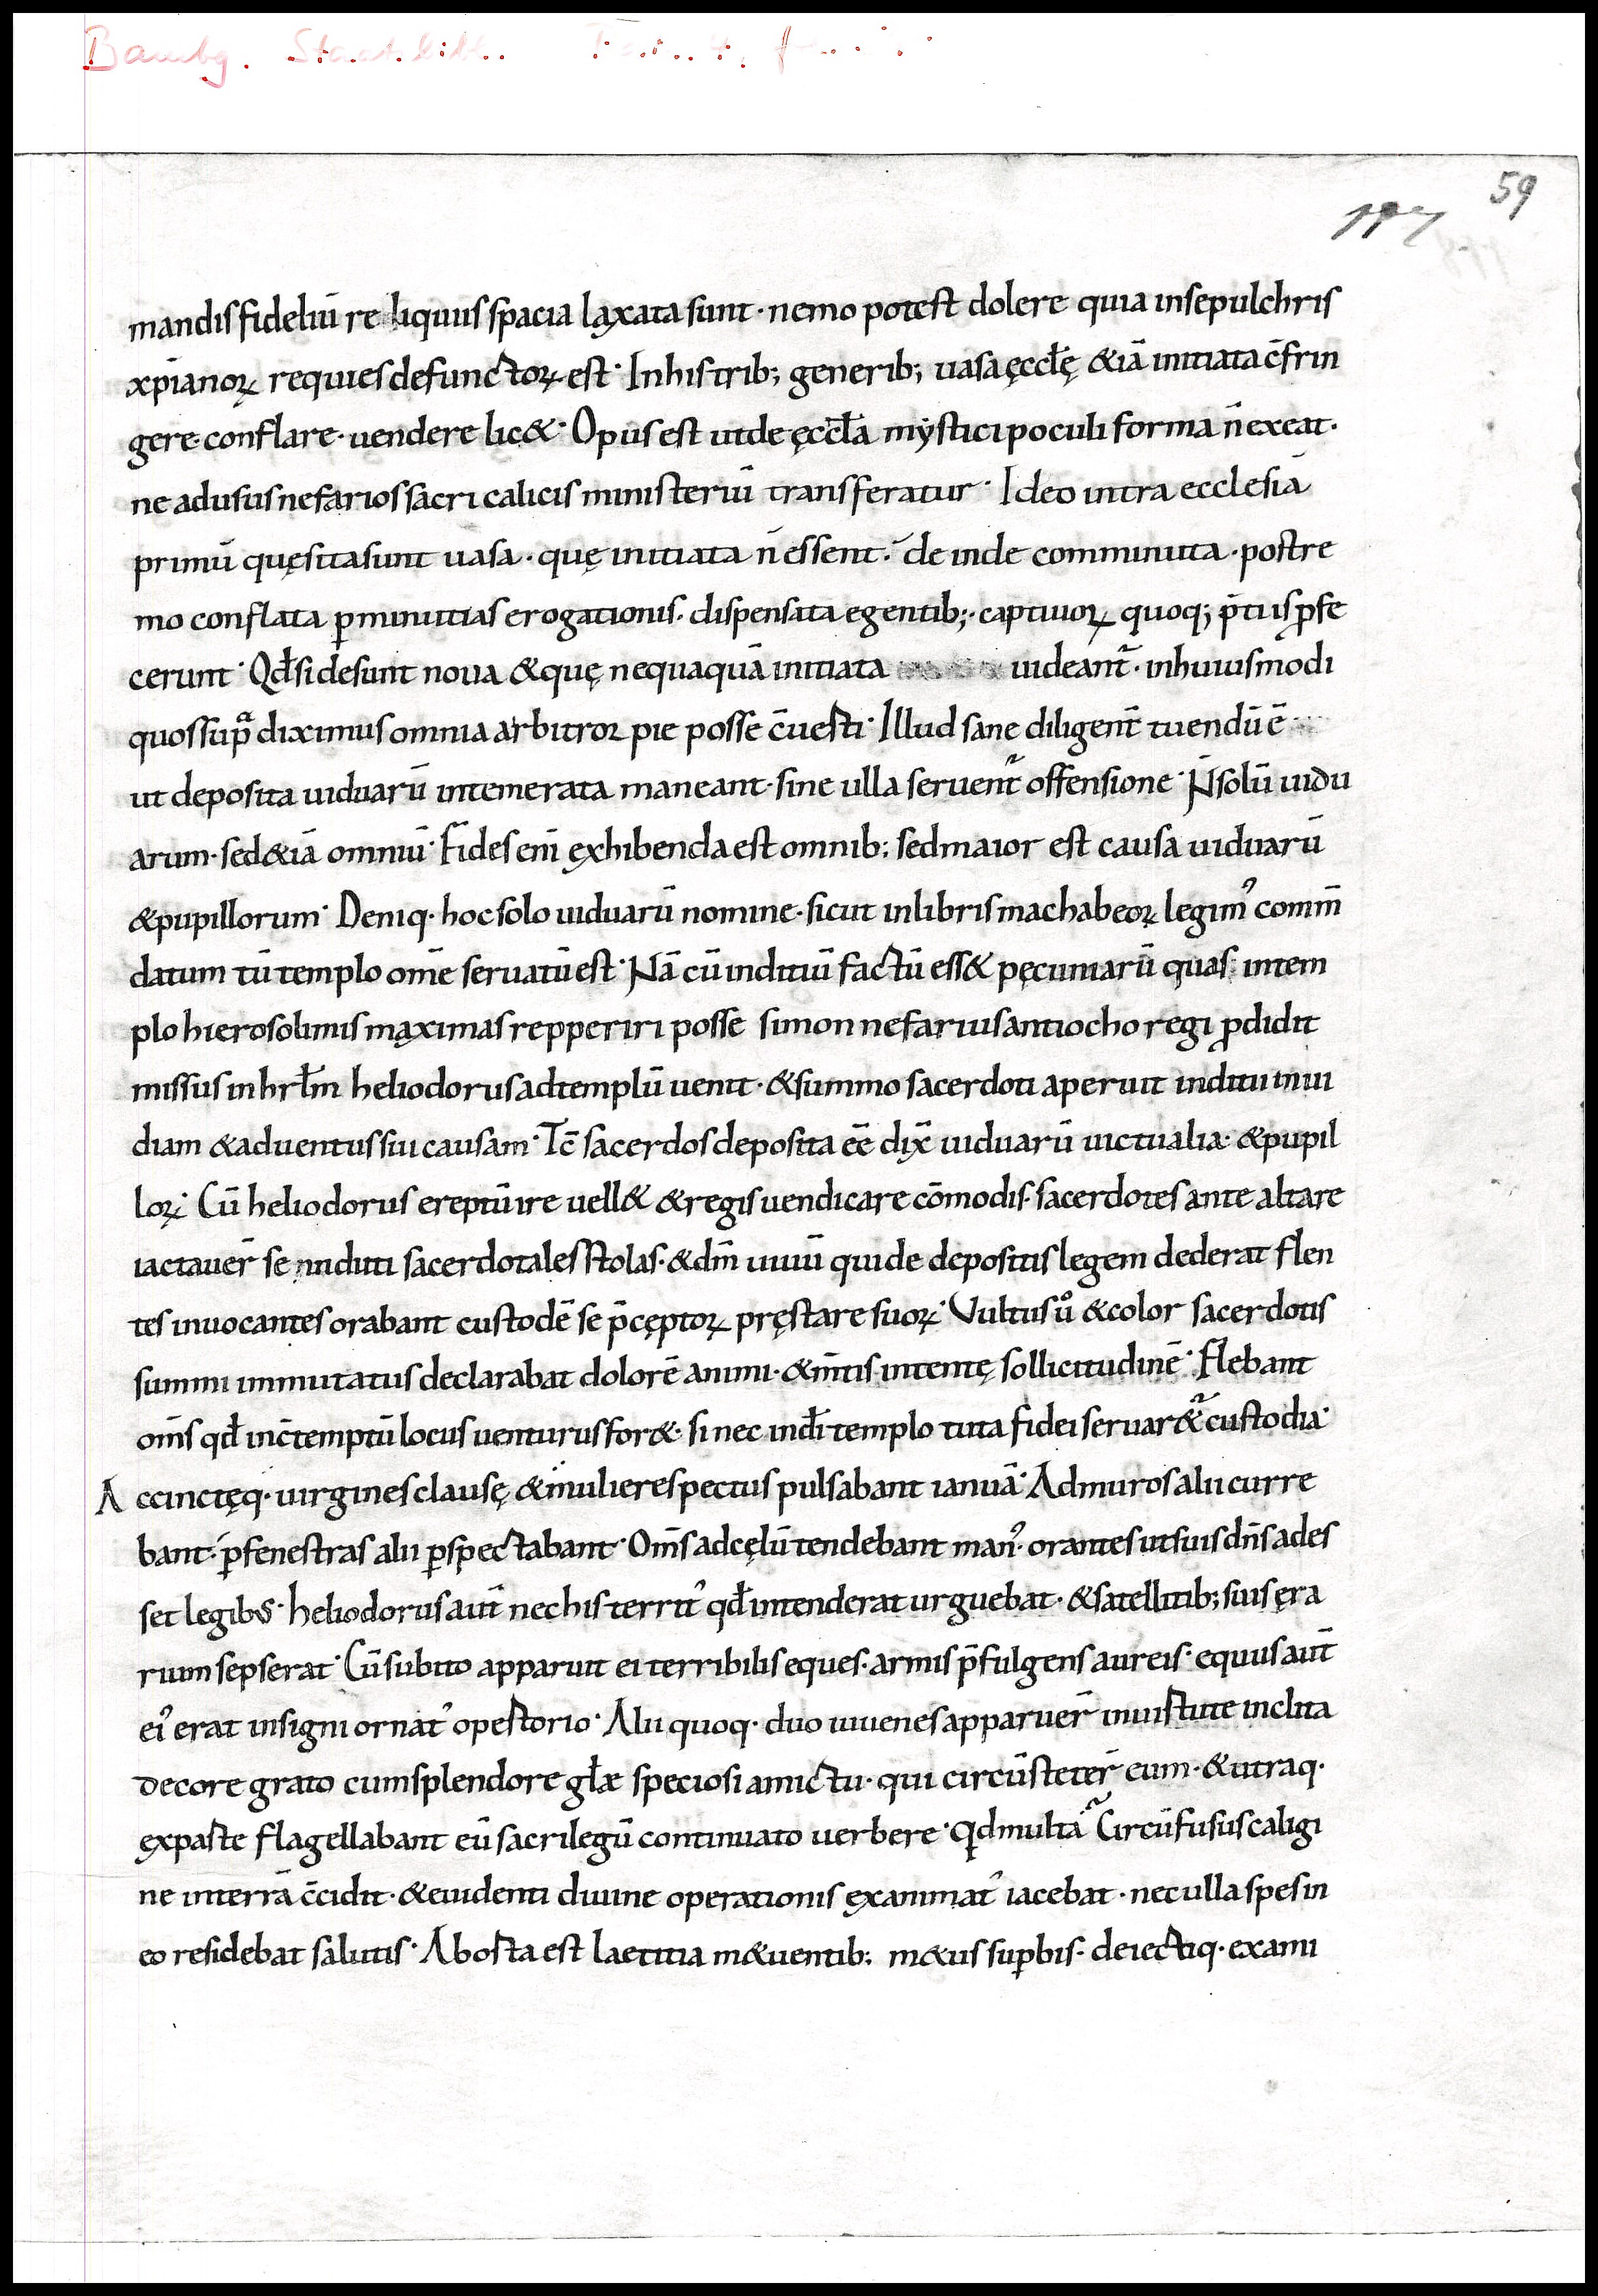 Bambg. Staatsbibl.
59
mandis fideliū reliquiis spacia laxata sunt · nemo potest dolere quia in sepulchris
xp̄ianoꝝ requies defunctoꝝ est · In his trib; generib; uasa ęccl̄ę &iā initiata c̄frin
gere· conflare· uendere lic& · Opus est ut de ęccl̄a mystici poculi forma n̄ exeat·
ne ad usus nefarios sacri calicis ministeriū transferatur · Ideo intra ecclesiā
primū quęsita sunt uasa · quę initiata n̄ essent · de inde comminuta · postre
mo conflata ꝑ minutias erogationis · dispensata egentib; · captiuoꝝ quoq; p̄tiis ꝓfe
cerunt · Qd̄ si desunt noua & quę nequaquā initiata uideant̄ · in huiusmodi
quos sup̄ diximus omnia arbitror pie posse c̄uerti · Illud sane diligent̄ tuendū ē
ut deposita uiduarū intemerata maneant · sine ulla seruent̄ offensione · N̄ solū uidu
arum · sed &iā omniū · Fides eni̅ exhibenda est omnib; sed maior est causa uiduarū
& pupillorum · Deniq· hoc solo uiduarū nomine · sicut in libris machabeoꝝ legim᾽ comm̄
datum tū templo om̄e seruatū est · Nā cū inditiū factū ess& pęcuniarū quas in tem
plo hierosolimis maximas repperiri posse simon nefarius antiocho regi ꝓdidit
missus in hrl̄m heliodorus ad templū uenit · & summo sacerdoti aperuit inditii inui
diam & aduentus sui causam · Tc̄ sacerdos deposita ēē dix̄ uiduarū uictualia · & pupil
loꝝ · Cū heliodorus ereptū ire uell& & regis uendicare cōmodis · sacerdotes ante altare
iactauer̄ se induti sacerdotales stolas · & dm̄ uiuū qui de depositis legem dederat flen
tes inuocantes orabant custodē se p̄cęptoꝝ pręstare suoꝝ · Vultus u͛o & color sacerdotis
summi immutatus declarabat dolorē animi · & m̄tis intentę sollicitudinē · Flebant
om̄s qd̄ in c̄temptū locus uenturus for& · si nec in dī templo tuta fidei seruar&̃ custodia ·
Accinctęq· uirgines clausę & mulieres pectus pulsabant ianuā · Ad muros alii curre
bant · ꝑ fenestras alii ꝑspectabant · Om̄s ad cęlū tendebant man᾽ · orantes ut suis dn̄s ades
set legibus · heliodorus aut̄ nec his territ᾽ qd̄ intenderat urguebat · & satellitib; suis ęra
rium sepserat · Cū subito apparuit ei terribilis eques · armis p̄fulgens aureis · equus aut̄
ei᾽ erat insigni ornat᾽ opertorio · Alii quoq· duo iuuenes apparuer̄ in uirtute inclita
decore grato cum splendore gl̄æ speciosi amictu · qui circūsteter̄ eum · & utraq·
ex parte flagellabant eū sacrilegū continuato uerbere · Qd multa ̃ Circūfusus caligi
ne in terrā c̄cidit · & euidenti diuine operationis exanimat᾽ iacebat · nec ulla spes in
eo residebat salutis · Aborta est laetitia m&uentib; m&us suꝑbis · deiectiq· ex ami